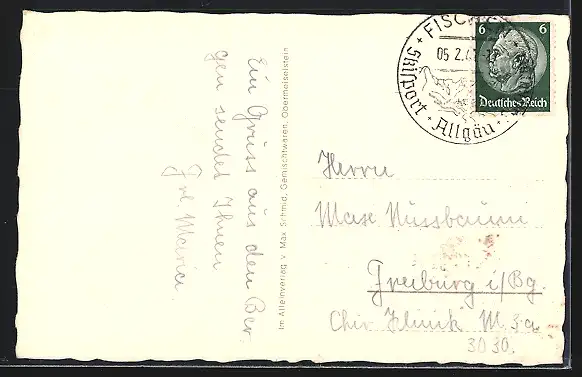 Ein Gruss aus den Ber
gen sendet Ihnen
Frl. Maria.
Im Alleinverlag v. Max Schmid, Gemischtwaren, Obermaiselstein
FISCH
05.2.4
Skisport · Allgäu
6 6
Deutsches Reich
Herrn
Max Nussbaum
Freiburg i/Bg.
Chir. Klinik M. 3a.
3030.